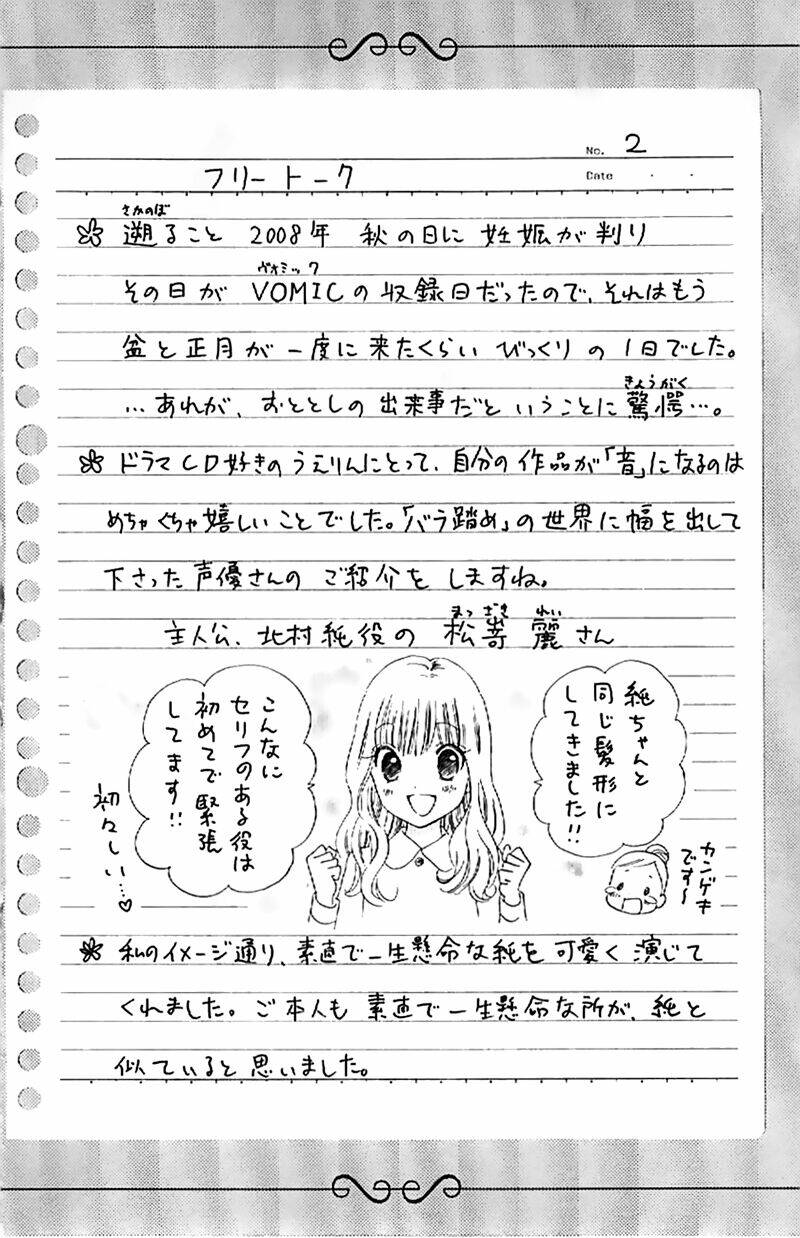 No. 2
Date
フリートーク
さかのぼ
遡ること 2008年 秋の日に 妊娠が判り
ヴォミック
その日が VOMICの収録日だったので、それはもう
盆と正月が一度に来たくらい びっくりの1日でした。
きょうがく
…あれが、おととしの出来事だということに驚愕…。
ドラマCD好きのうえりんにとって、自分の作品が「音」になるのは
めちゃくちゃ嬉しいことでした。「バラ踏め」の世界に幅を出して
下さった声優さんの ご紹介を しますね。
まつざき れい
主人公、北村純役の 松嵜 麗さん
純ちゃんと
同じ髪形に
してきました!!
カンゲキ
です〜
こんなに
セリフのある役は
初めてで緊張
してます!!
初々しい…♡
私のイメージ通り、素直で一生懸命な純を可愛く演じて
くれました。ご本人も 素直で一生懸命な所が、純と
似ていると思いました。